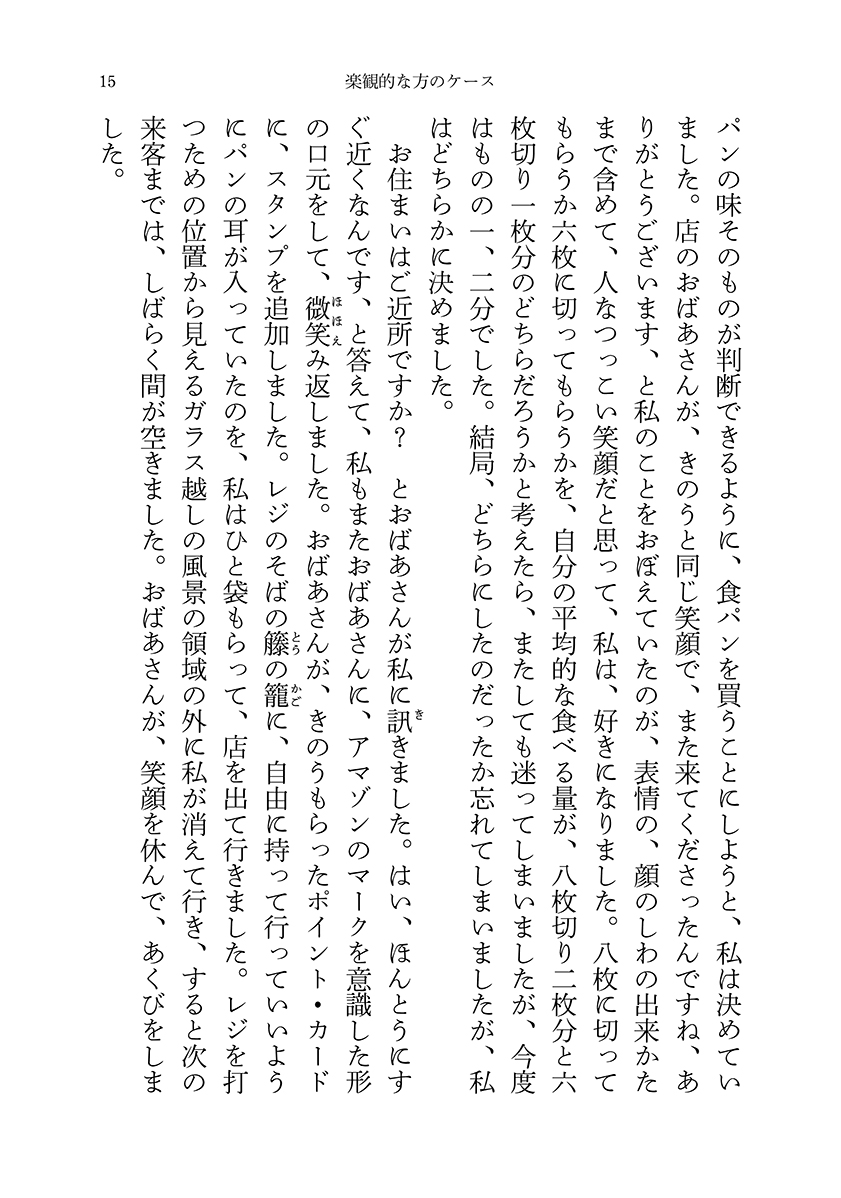 15
楽観的な方のケース
パンの味そのものが判断できるように、食パンを買うことにしようと、私は決めてい
ました。店のおばあさんが、きのうと同じ笑顔で、また来てくださったんですね、あ
りがとうございます、と私のことをおぼえていたのが、表情の、顔のしわの出来かた
まで含めて、人なつっこい笑顔だと思って、私は、好きになりました。八枚に切って
もらうか六枚に切ってもらうかを、自分の平均的な食べる量が、八枚切り二枚分と六
枚切り一枚分のどちらだろうかと考えたら、またしても迷ってしまいましたが、今度
はものの一、二分でした。結局、どちらにしたのだったか忘れてしまいましたが、私
はどちらかに決めました。
お住まいはご近所ですか？　とおばあさんが私に訊きました。はい、ほんとうにす
ぐ近くなんです、と答えて、私もまたおばあさんに、アマゾンのマークを意識した形
の口元をして、微笑み返しました。おばあさんが、きのうもらったポイント・カード
に、スタンプを追加しました。レジのそばの籐の籠に、自由に持って行っていいよう
にパンの耳が入っていたのを、私はひと袋もらって、店を出て行きました。レジを打
つための位置から見えるガラス越しの風景の領域の外に私が消えて行き、すると次の
来客までは、しばらく間が空きました。おばあさんが、笑顔を休んで、あくびをしま
した。